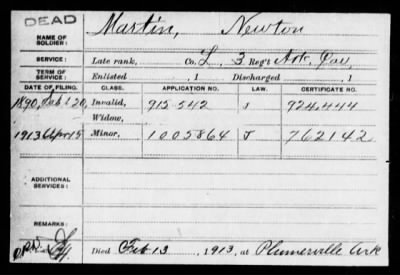 DEAD
NAME OF SOLDIER: Martin, Newton
SERVICE: Late rank, Co. L, 3 Reg't Ark. Cav.
TERM OF SERVICE: Enlisted , 1 Discharged , 1
DATE OF FILING. CLASS. APPLICATION NO. LAW. CERTIFICATE NO.
1890, 20, Invalid, 915542 924,444
Widow,
1913 Apr 15 Minor, 1005864 J 762142
ADDITIONAL SERVICES:
REMARKS:
Died Feb 13, 1913, at Plumerville Ark